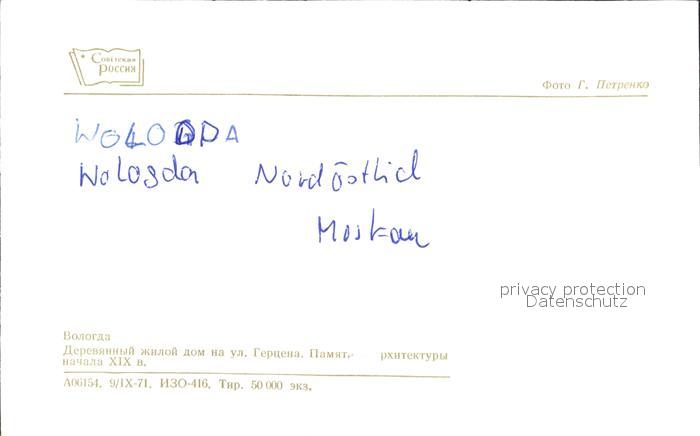 Советская
Россия
Фото Г. Петренко
WOLOGDA
Wologda Nordöstlich
Moskau
privacy protection
Datenschutz
Вологда
Деревянный жилой дом на ул. Герцена. Памят рхитектуры
начала XIX в.
А06154. 9/IX-71. ИЗО-416. Тир. 50 000 экз.